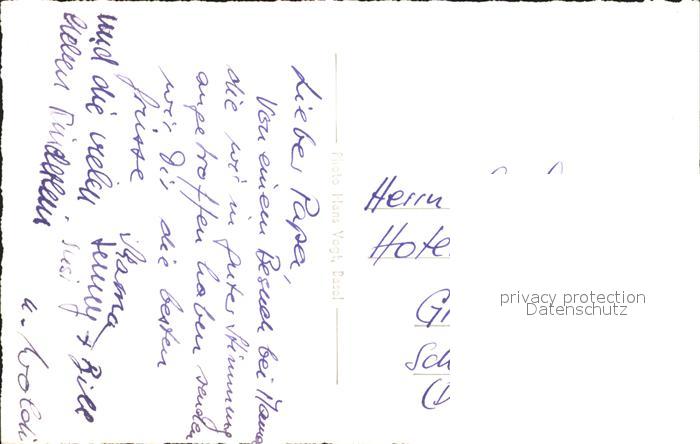 Lieber Papa,
Von einem Besuch bei Mama
die wir in guter Stimmung
angetroffen haben senden
wir Dir die besten
Grüsse
Mama
und die vielen Jenny + Bill
lieben Kinderlein Susi
u. Woldi
Photo Hans Vogt, Basel
Herrn
Hote
G
Sch
(D
privacy protection
Datenschutz